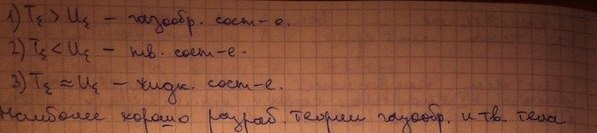 1) T_ξ > U_ξ – газообр. сост-е.
2) T_ξ < U_ξ – тв. сост-е.
3) T_ξ ≈ U_ξ – жидк. сост-е.
Наиболее хорошо разраб. теории газообр. и тв. тела